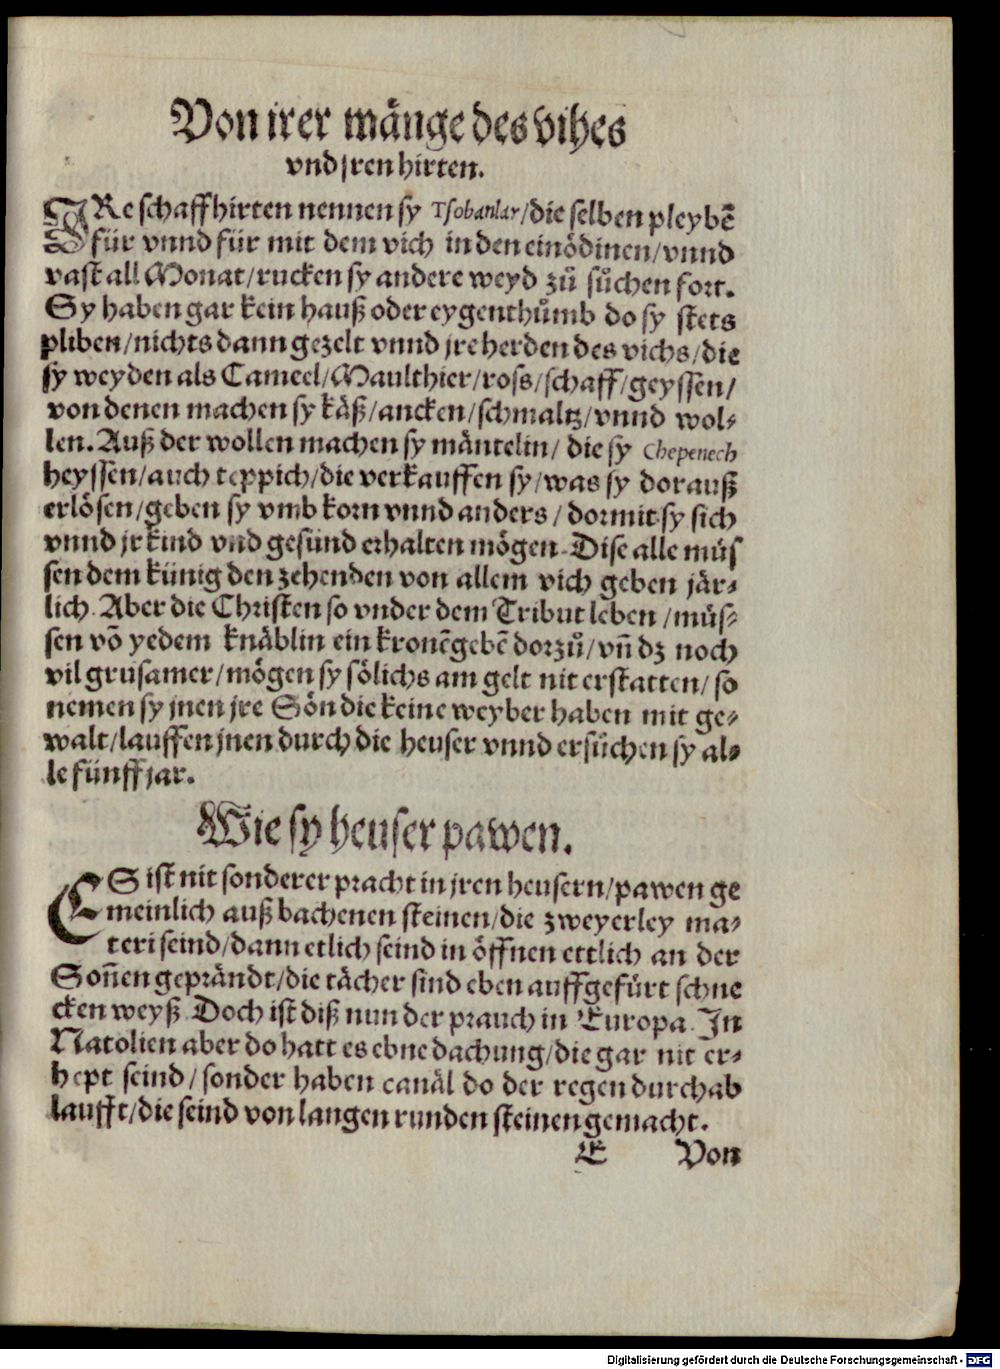 Von irer mänge des vihes
vnd jren hirten.
IRe schaffhirten nennen sy Tsobanlar/die selben pleybẽ
für vnnd für mit dem vich in den einödinen/vnnd
vast all Monat/rucken sy andere weyd zů sůchen fort.
Sy haben gar kein hauß oder eygenthůmb do sy stets
pliben/nichts dann gezelt vnnd jre herden des vichs/die
sy weyden als Cameel/Maulthier/ross/schaff/geyssen/
von denen machen sy käß/ancken/schmaltz/vnnd wol-
len. Auß der wollen machen sy mäntelin/ die sy Chepenech
heyssen/auch teppich/die verkauffen sy/was sy dorauß
erlösen/geben sy vmb korn vnnd anders/ dormit sy sich
vnnd jr kind vnd gesünd erhalten mögen. Dise alle müs
sen dem künig den zehenden von allem vich geben jär-
lich. Aber die Christen so vnder dem Tribut leben /müs-
sen võ yedem knäblin ein kronẽ gebẽ dorzů/vñ dz noch
vil grusamer/mögen sy sölichs am gelt nit erstatten/ so
nemen sy jnen jre Sön die keine weyber haben mit ge-
walt/lauffen jnen durch die heuser vnnd ersůchen sy al-
le fünff jar.
Wie sy heuser pawen.
ES ist nit sonderer pracht in jren heusern/pawen ge
meinlich auß bachenen steinen/die zweyerley ma-
teri seind/dann etlich seind in öffnen ettlich an der
Soñen geprändt/die tächer sind eben auffgefürt schne
cken weyß. Doch ist diß nun der prauch in Europa. In
Natolien aber do hatt es ebne dachung/die gar nit er-
hept seind/sonder haben canäl do der regen durchab
laufft/die seind von langen runden steinen gemacht.
E Von
Digitalisierung gefördert durch die Deutsche Forschungsgemeinschaft - DFG